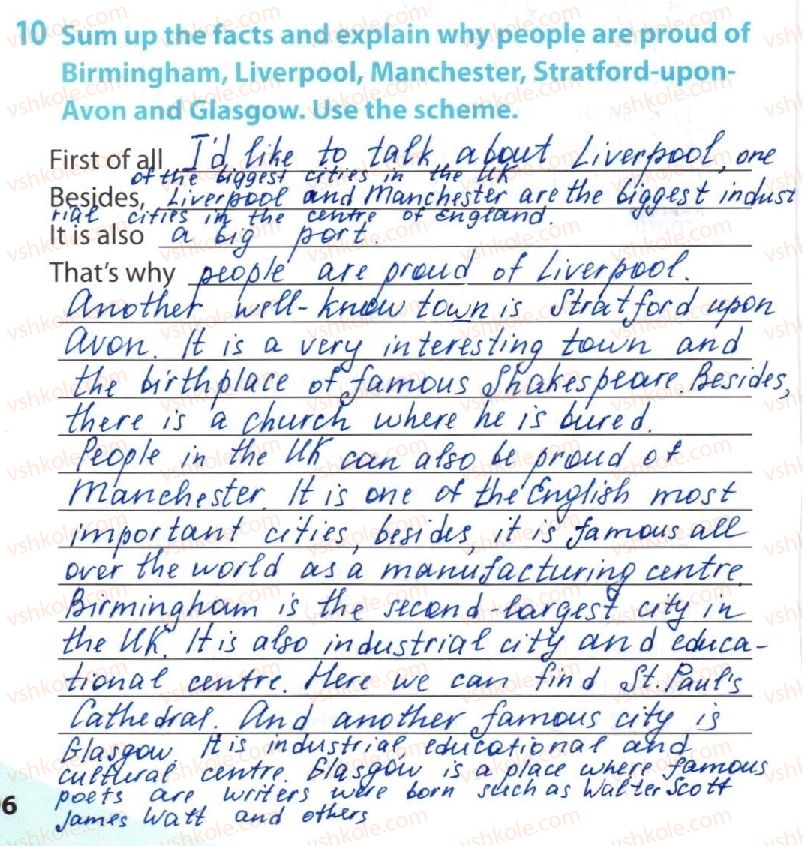 10 Sum up the facts and explain why people are proud of
Birmingham, Liverpool, Manchester, Stratford-upon-
Avon and Glasgow. Use the scheme.
First of all I'd like to talk about Liverpool, one
of the biggest cities in the UK
Besides, Liverpool and Manchester are the biggest indust
rial cities in the centre of England.
It is also a big port.
That's why people are proud of Liverpool.
Another well-know town is Stratford upon
Avon. It is a very interesting town and
the birthplace of famous Shakespeare. Besides,
there is a church where he is bured.
People in the UK can also be proud of
Manchester. It is one of the English most
important cities, besides, it is famous all
over the world as a manufacturing centre.
Birmingham is the second-largest city in
the UK. It is also industrial city and educa-
tional centre. Here we can find St. Paul's
Cathedral. And another famous city is
Glasgow. It is industrial, educational and
cultural centre. Glasgow is a place where famous
poets are writers were born such as Walter Scott
James Watt and others
6
vshkole.com